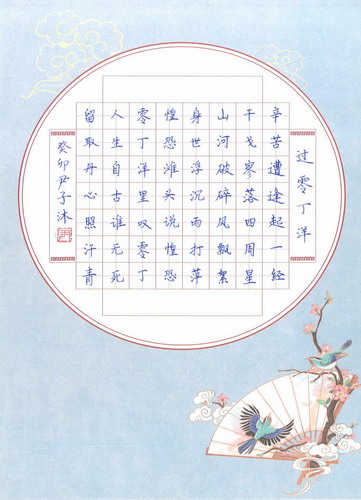 过零丁洋
辛苦遭逢起一经
干戈寥落四周星
山河破碎风飘絮
身世浮沉雨打萍
惶恐滩头说惶恐
零丁洋里叹零丁
人生自古谁无死
留取丹心照汗青
癸卯尹子沐